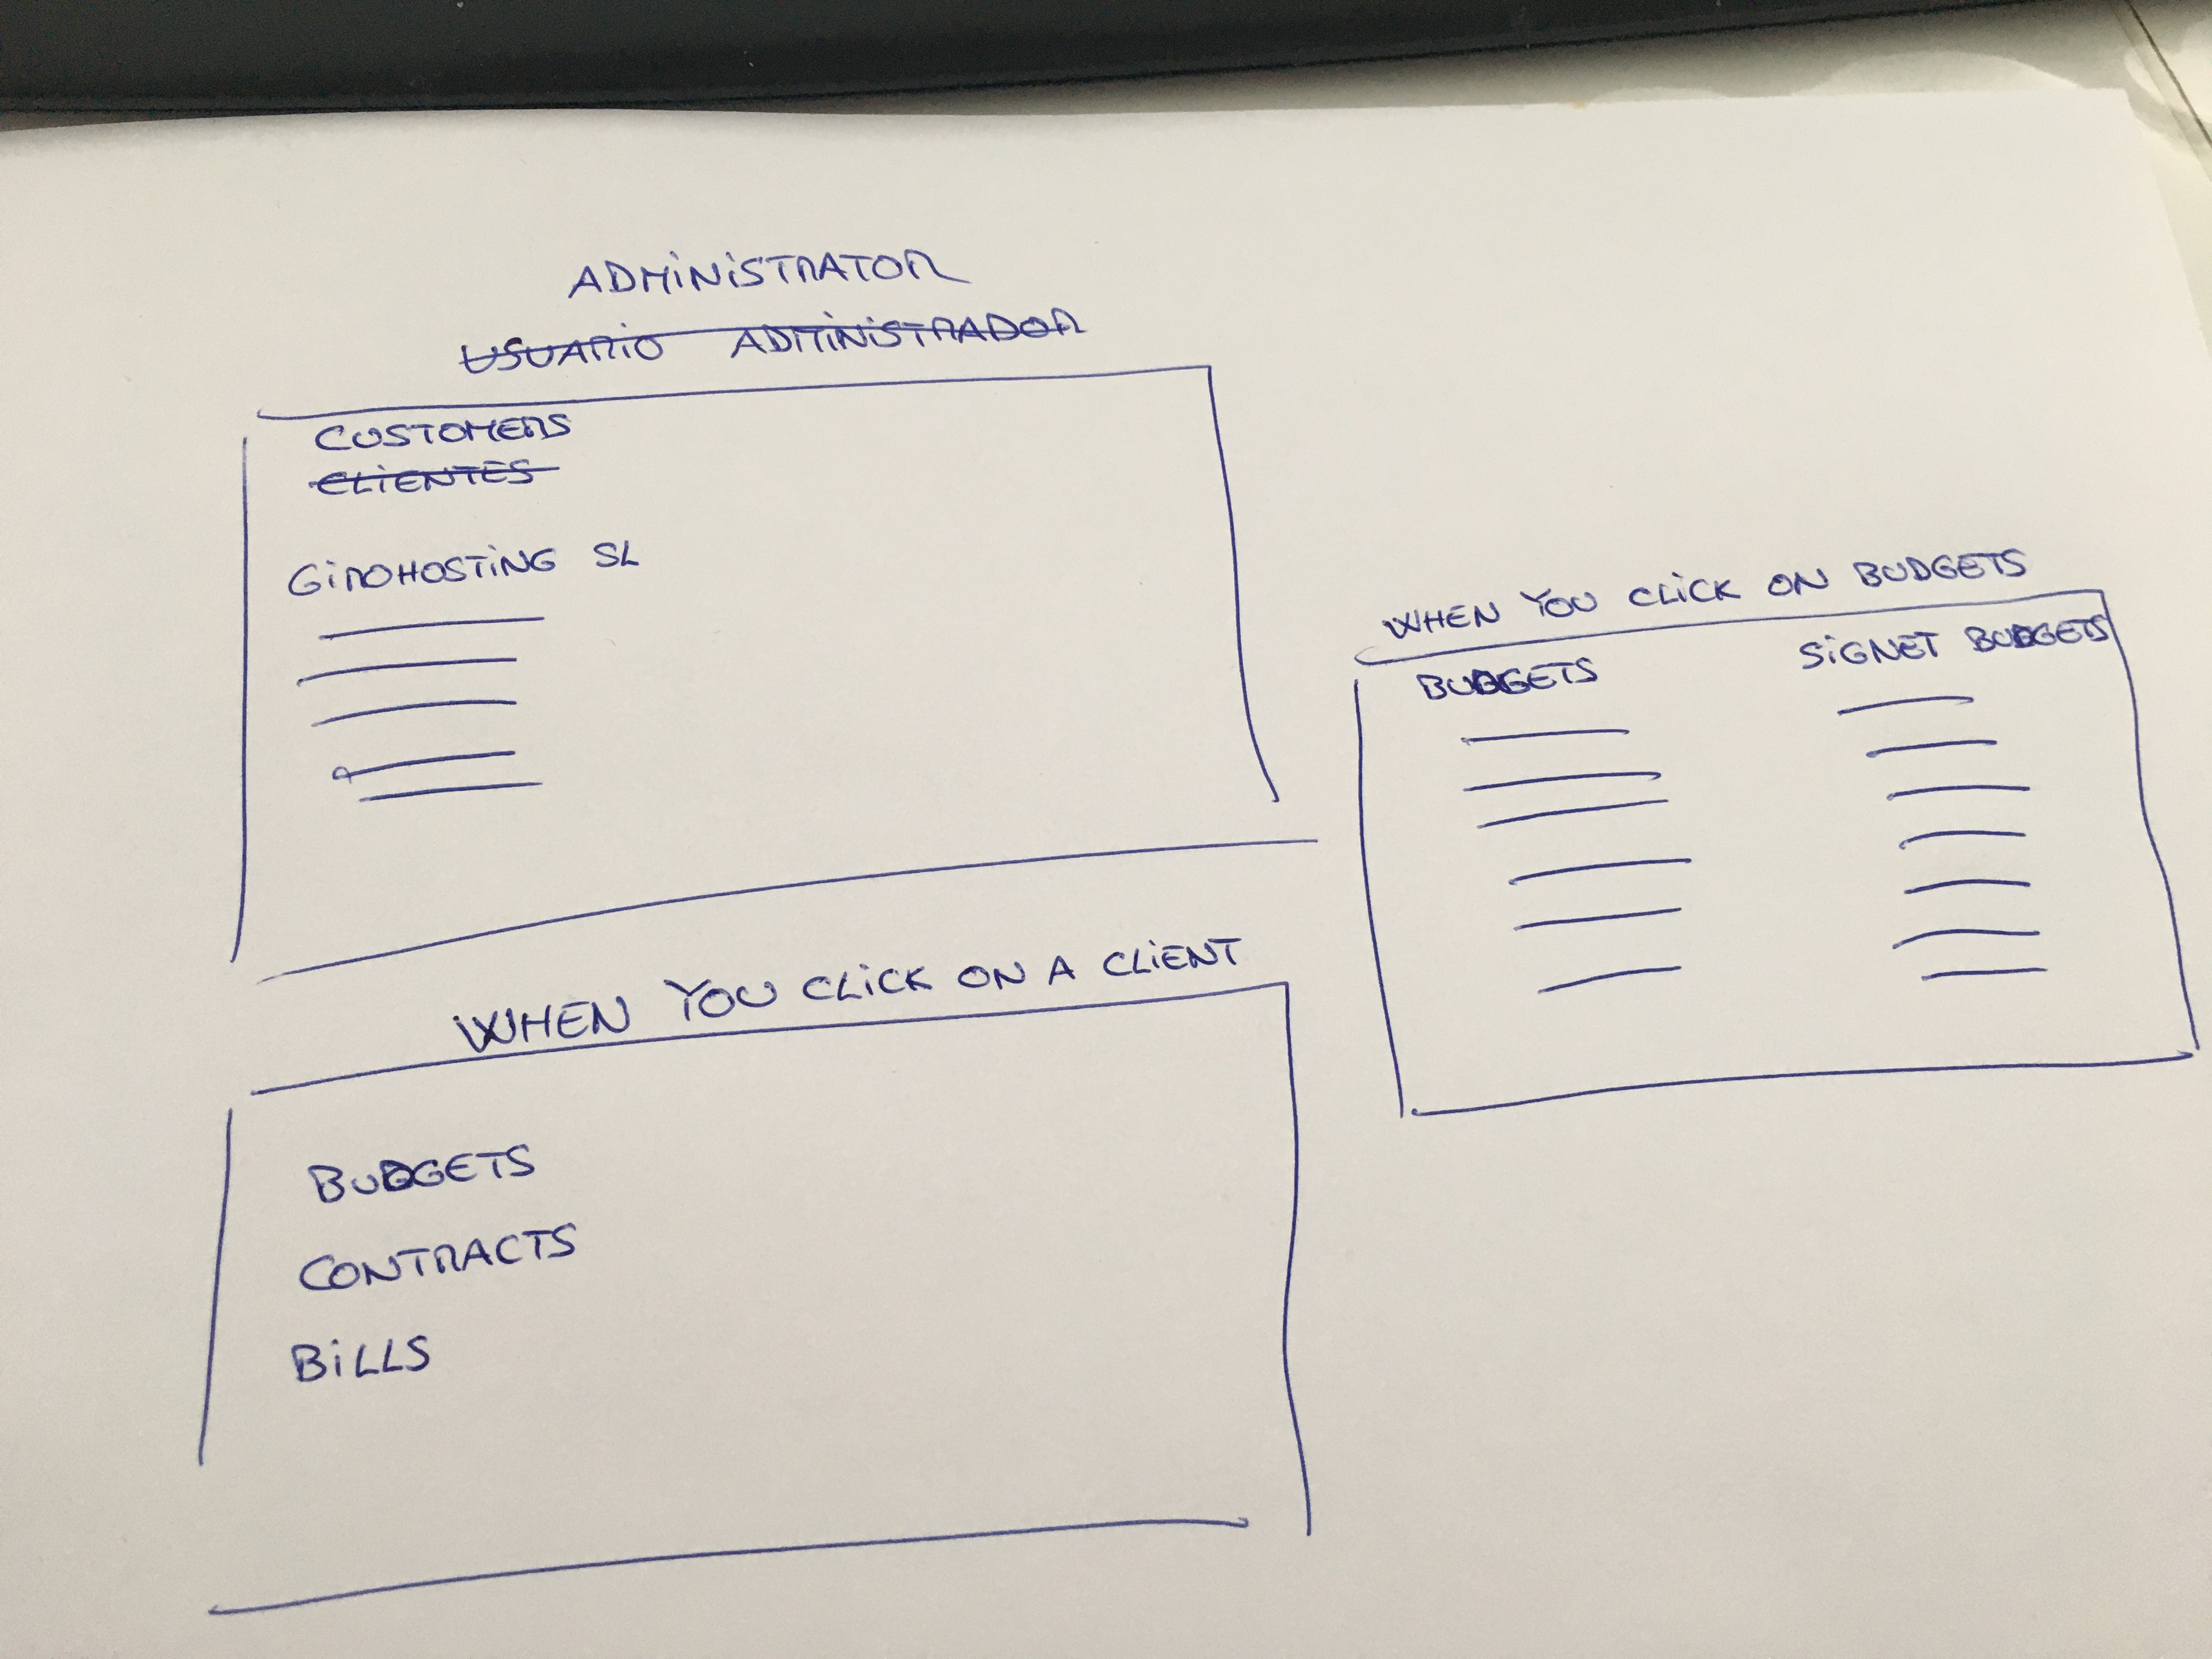 ADMINISTRATOR
USUARIO ADMINISTRADOR
CUSTOMERS
CLIENTES
GIROHOSTING SL
WHEN YOU CLICK ON A CLIENT
BUDGETS
CONTRACTS
BILLS
WHEN YOU CLICK ON BUDGETS
BUDGETS SIGNET BUDGETS